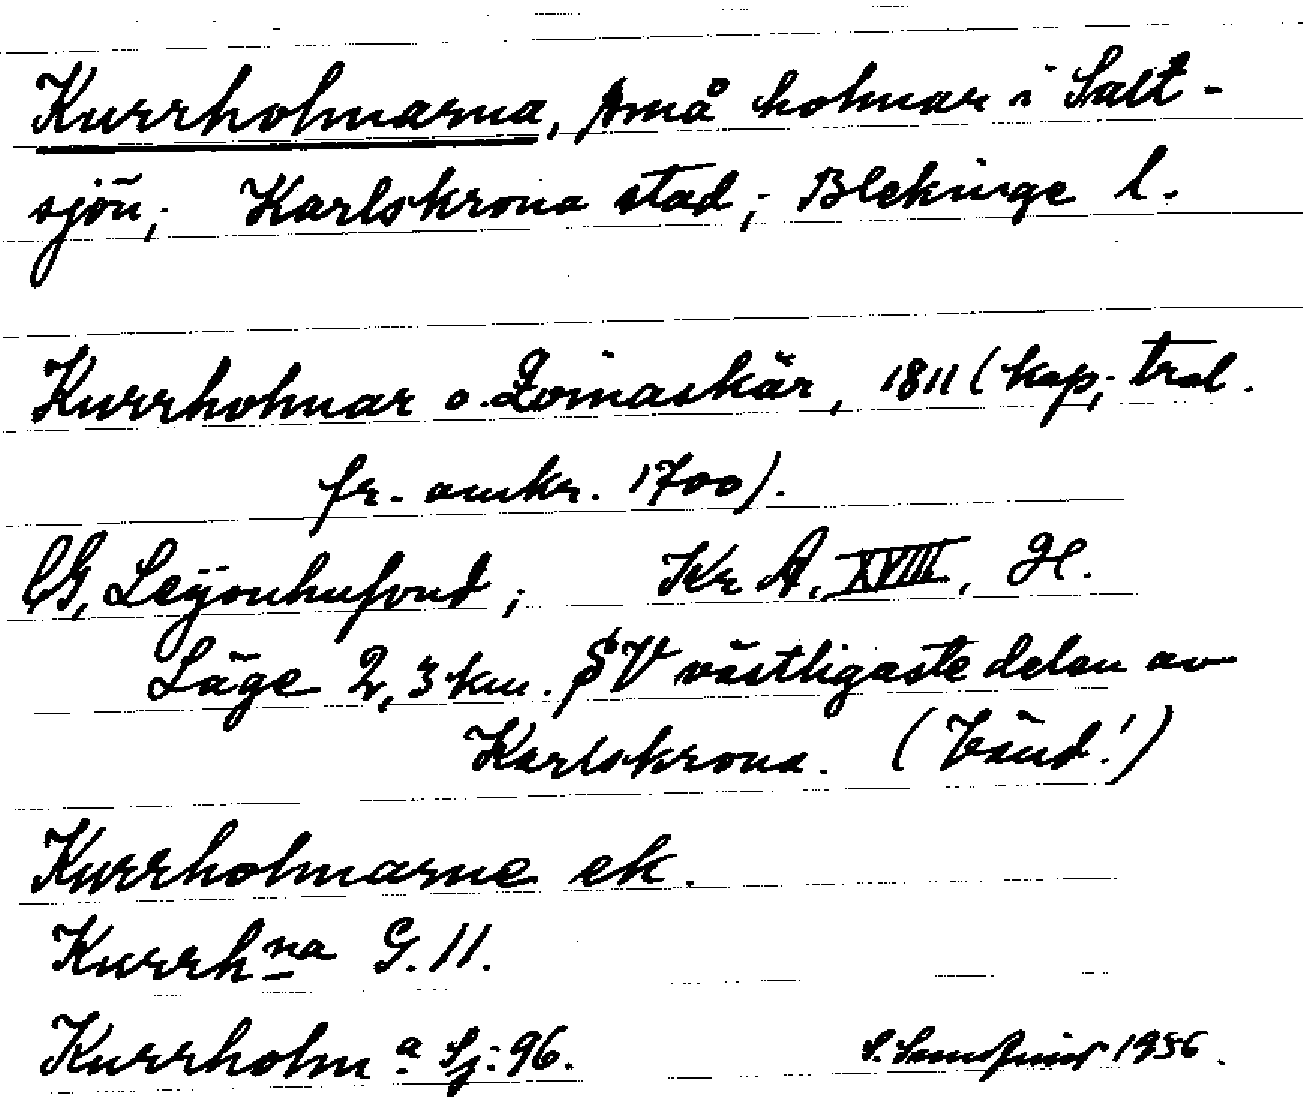 Kurrholmarna, små holmar i Salt-
sjön; Karlskrona stad; Blekinge l.
Kurrholmar o. Zomaskär, 1811 (kop; trol.
fr. omkr. 1700).
CG, Leÿonhufvud; Kr A. XVIII, H.
Läge 2,3 km. SV västligaste delen av
Karlskrona. (Vänd!)
Kurrholmarne ek.
Kurrhna G. 11.
Kurrholma Sj: 96. S. 1956.